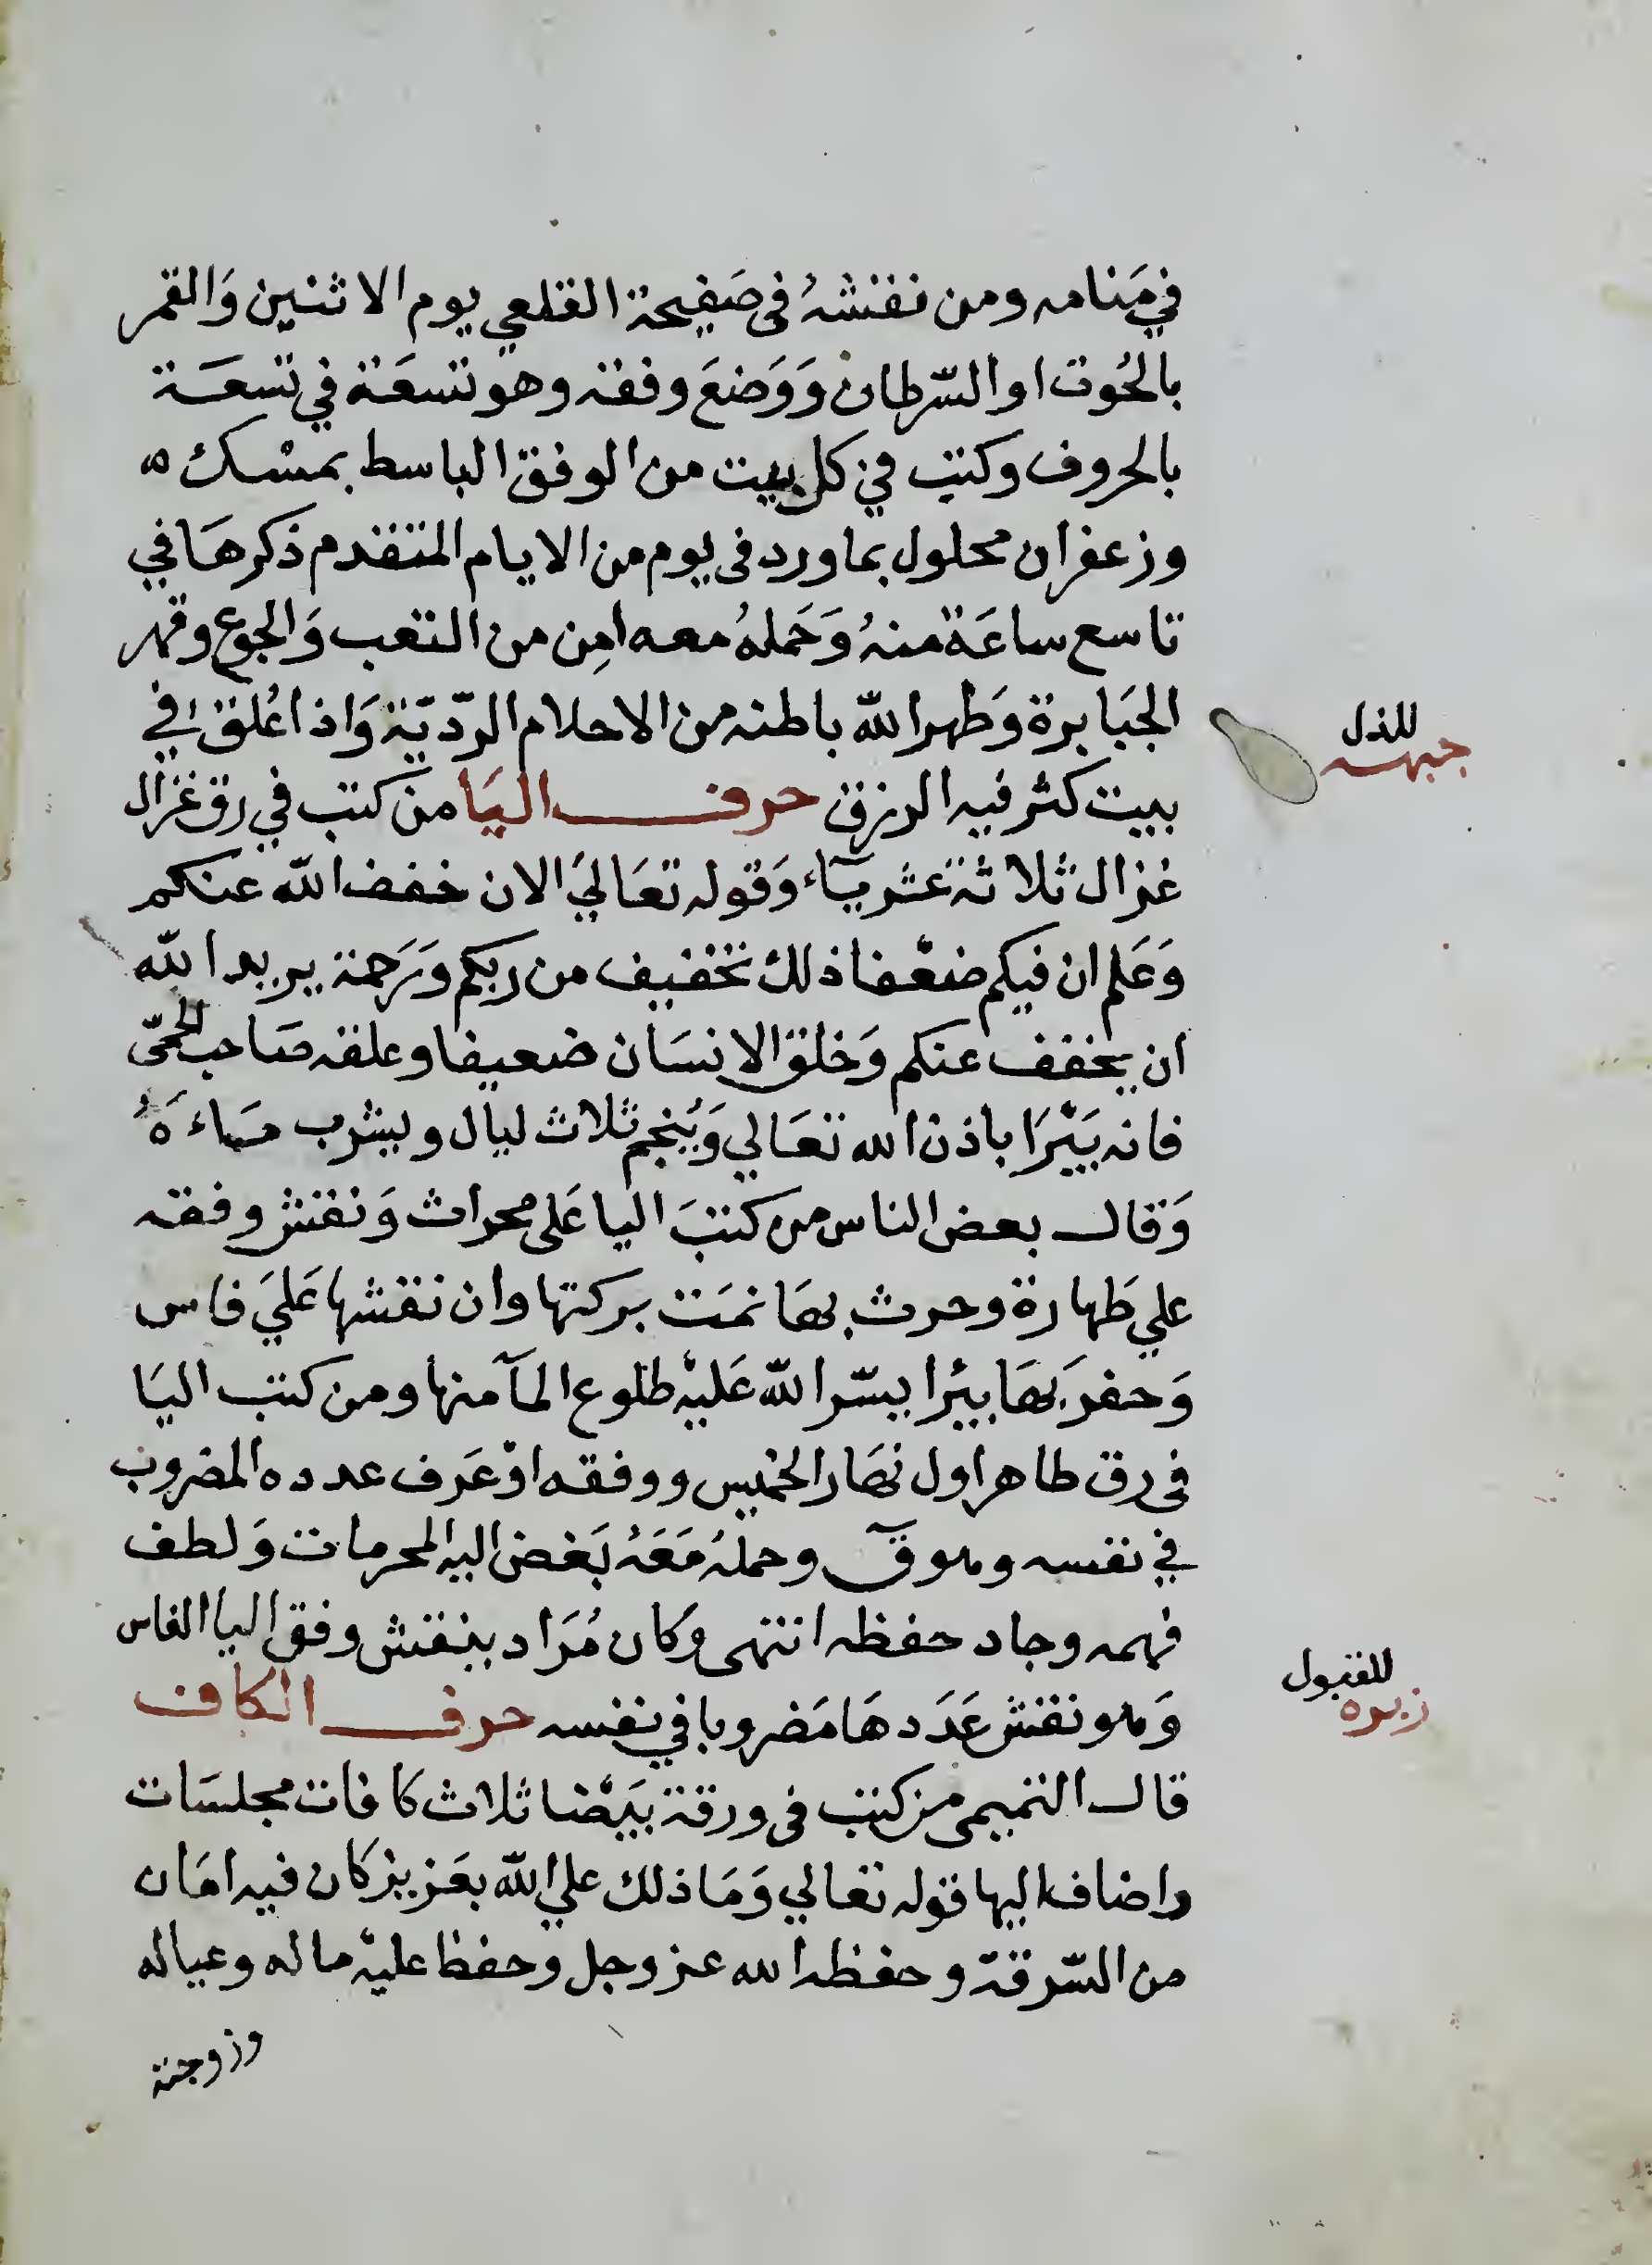 في مَنامه ومن نقشهُ فى صَفيحة القلعي يوم الاثنين وَالقمر
بالحُوت او السّرطان وَوَضعَ وفقه وهو تسعَة في تسعَة
بالحروف وكتب في كل بيت من الوفق الباسط بمسْك
وزعفران محلول بماورد فى يوم من الايام المتقدم ذكرهَا في
تاسع ساعَة منهُ وَحَملهُ معه امِن من التعب وَالجوع وقهر
الجبَابرة وَطهر الله باطنه من الاحلام الردّيّة وَاذا عُلق في
للذل
جبهه
بيت كثر فيه الرزق حرف اليَا من كتب في رق غزال
غزال ثلاثة عشر يآء وَقوله تعَالي الان خفف الله عنكم
وَعَلم ان فيكم ضعْفا ذلك تخفيف من ربكم وَرَحمة يريد الله
ان يخفف عنكم وَخلق الانسَان ضعيفا وعلقه صَاحب الحمّى
فانه يَبْرَا باذن الله تعَالي وَيُنجم ثلاث ليال ويشرب مَاءَهُ
وَقال بعض الناس من كتبَ اليا عَلى محراث وَنقش وفقه
علي طَهارة وحرث بهَا نمَت بركتها وان نقشها عَليَ فاس
وَحفرَ بهَا بيْرا يسّر الله عَليْه طلوع المآ منها ومن كتب اليَا
فى رق طاهر اول نهَار الخميس ووفقه اوْ عَرف عدده المضروب
في نفسه وهو ق وحملهُ مَعَهُ بَغض اليه المحرمات وَلطف
فهمه وجاد حفظه انتهى وكان مُرَاد بينقش وفق اليا الفاس
وَهو نقش عَدَدهَا مَضروبا في نفسه حرف الكاف
للقبول
زبره
قال التميمى من كتب فى ورقة بيَضْا ثلاث كافات مجلسَات
واضاف اليها قوله تعالي وَمَا ذلك علي الله بعَزيز كان فيه امَان
من السّرقة وحفظه الله عز وجل وحفظ عليْه ماله وعياله
وزوجته